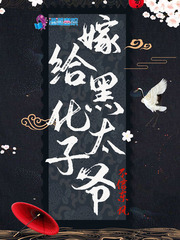 嫁给黑化太子爷